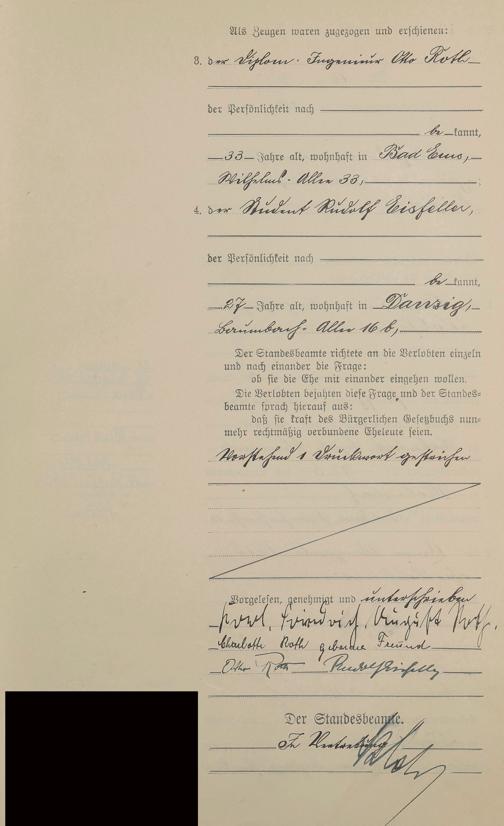 Als Zeugen waren zugezogen und erschienen:
3. der Diplom-Ingenieur Otto Roth
der Persönlichkeit nach
bekannt,
33 Jahre alt, wohnhaft in Bad Ems,
Wilhelms-Allee 33,
4. der Student Rudolf Eisfeller,
der Persönlichkeit nach
bekannt,
27 Jahre alt, wohnhaft in Danzig,
Baumbach-Allee 16 b,
Der Standesbeamte richtete an die Verlobten einzeln
und nach einander die Frage:
ob sie die Ehe mit einander eingehen wollen.
Die Verlobten bejahten diese Frage und der Standes=
beamte sprach hierauf aus:
daß sie kraft des Bürgerlichen Gesetzbuchs nun=
mehr rechtmäßig verbundene Eheleute seien.
Vorstehend 1 Druckwort gestrichen
Vorgelesen, genehmigt und unterschrieben
Karl, Friedrich, August Roth.
Charlotte Roth geborene Freund
Otto Roth Rudolf Eisfeller
Der Standesbeamte.
In Vertretung